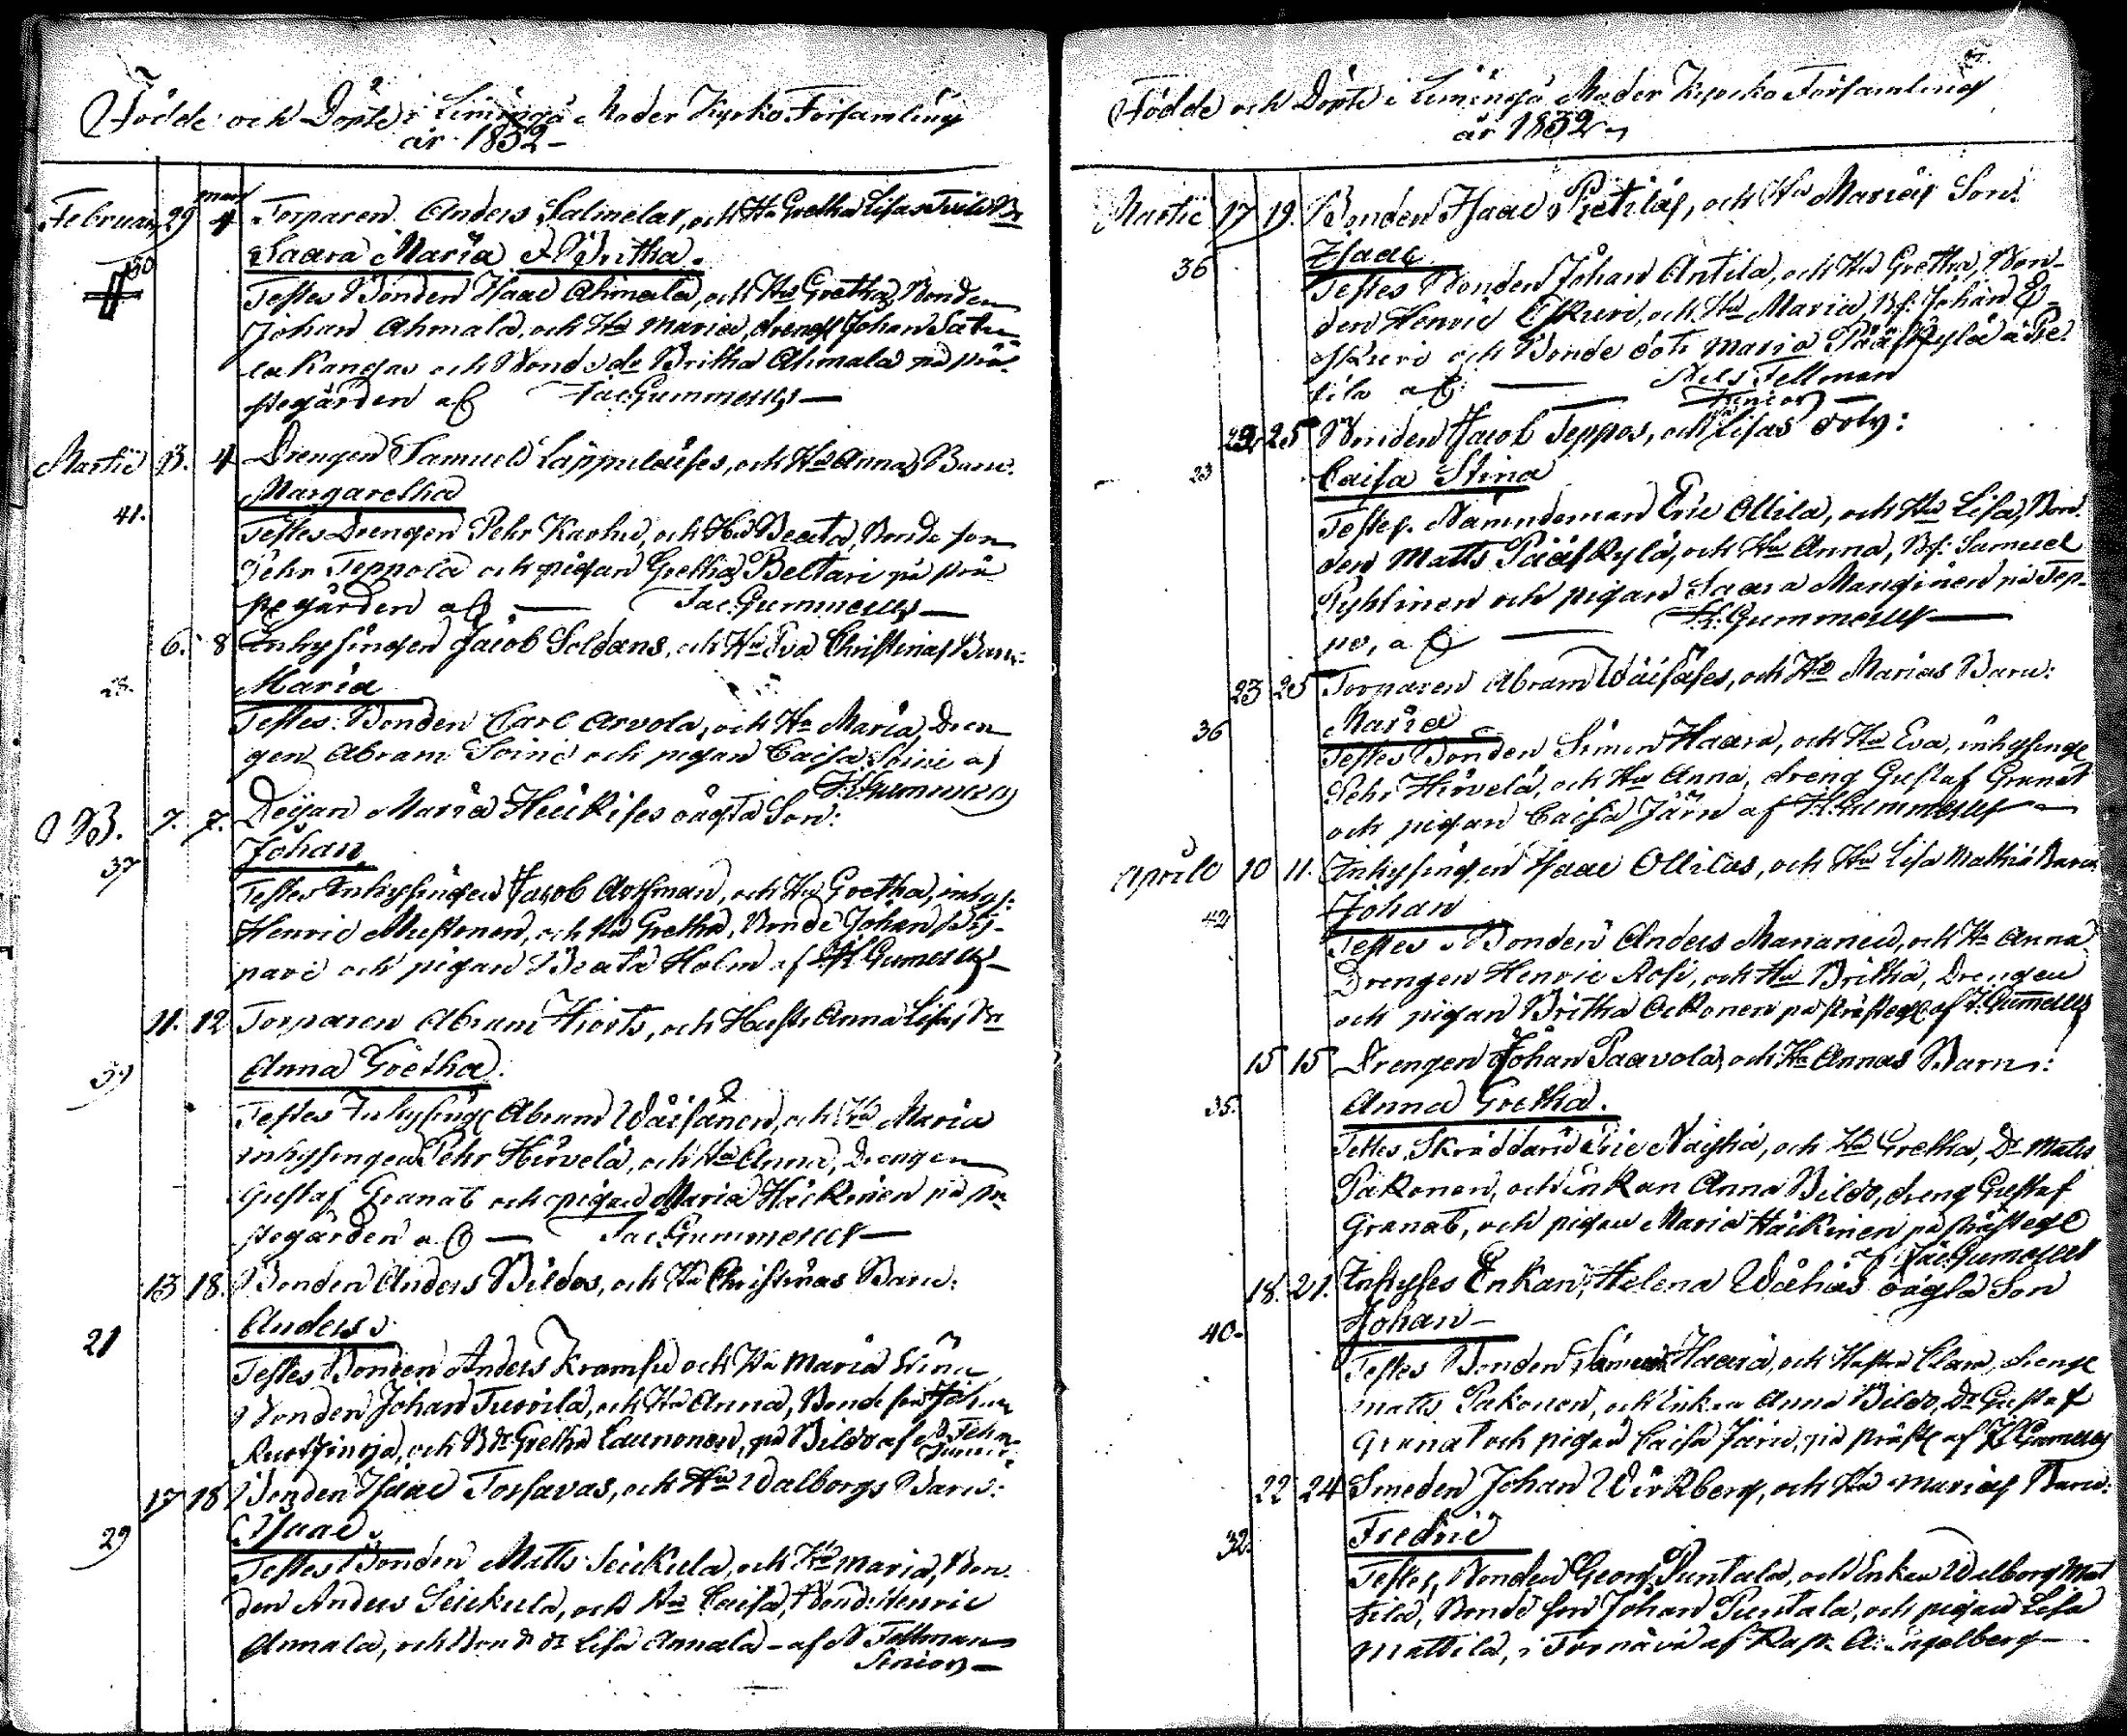 Födde och Döpte i Limingå Moder Kyrko Församling
år 1832
Februari 29 mart 4 Torparen Anders Salmelas, och Hu Gretha Lisas Tvill Bn
30
Saara Maria & Britha.
Testes Bonden Isaac Ahmala, och Hu Gretha, Bonden
Johan Ahmala, och Hu Maria, dreng Johan
kangas och Bonde dr Britha Ahmala på prä-
stegården af Jac. Gummerus
Martii 3. 4 Drengen Samuel Lappalaises, och Hu Annas Barn:
Margaretha
41.
Testes Drengen Pehr Karhu, och Hu Beata, Bonde son
Pehr Teppola och pigan Gretha Beltari på prä
stegården af Jac. Gummerus
6. 8 Inhysingen Jacob Soldans, och Hu Eva Christinas Barn:
28. Maria
Testes: Bonden Carl Arvola, och Hu Maria, Dren
gen Abram Soini och pigan Caisa Soini af
J. Gummerus
7. 7. Deijan Maria Heikises oägta Son:
37 Johan
Testes Inhysingen Jacob Axman, och Hu Gretha, inhys:
Henric Mustonen, och Hu Gretha, Bonde Johan
pari och pigan Beata Holm af Gumerus
11. 12 Torparen Abram Hiorts, och Hustr Anna Lisas Bn
39 Anna Gretha.
Testes Inhysing Abram Wäisänen, och Hu Maria
inhysingen Pehr Hirvelä, och Hu Anna, Drengen
Gustaf Granat och pigan Maria Häckinen på prä
stegården af Jac. Gummerus
13 18. Bonden Anders Bildos, och Hu Christinas Barn:
21 Anders
Testes Bonden Anders Kramsu och Hu Maria Stina
Bonden Johan Tuovila, och Hu Anna, Bonde son Johan
och B dr Gretha Launonen, på Bildo af
17 18 Bonden Isaac Torfavas, och Hu Walborgs Barn:
29 Isaac.
Testes Bonden Matts Seickula, och Hu Maria, Bon-
den Anders Seickula, och Hu Caisa, Bond: Henric
Annala, och Bonde dr Lisa Annala - af N Fellman
Senior
Födde och Döpte i Limingå Moder Kyrko Församling
år 1832
Martii 17 19. Bonden Isaac Pietiläs, och Hu Marias Son:
36 Isaac
Testes Bonden Johan Antila, och Hu Gretha, Bon-
den Henric Eskuri, och Hu Maria, Bs: Johan E-
skuri och Bonde dotr Maria Pääskylä å Pie-
tilä af Nils Fellman
Senior
25 Bonden Jacob Teppos, och Lisas dotr:
23 Caisa Stina
Testes. Nämndeman Eric Ollila, och Hu Lisa, Bon-
den Matts Pääskylä, och Hu Anna, Bs: Samuel
Pyhtinen och pigan Saara Manginen på Tep-
po, af Gummerus
23 25 Torparen Abram Wäisäses, och Hu Marias Barn:
36 Maria
Testes Bonden Simon Haara, och Hu Eva, inhysinge
Pehr Hirvelä, och Hu Anna, dreng Gustaf Granat
och pigan Caisa Järn af Gummerus
Aprill 10 11. Inhysingen Isaac Ollilas, och Hu Lisa Mathis Barn
42 Johan
Testes Bonden Anders Mananen, och Hu Anna
Drengen Henric Rosi, och Hu Britha, Drengen
och pigan Britha Ockonen på prästeg af J. Gummerus
15 15 Drengen Johan Paavola, och Hu Annas Barn:
35. Anna Gretha.
Testes, Skräddare Eric Näyhä, och Hu Gretha, Dr Matts
Pakonen, och Enkan Anna Bildo, dreng Gustaf
Granat, och pigan Maria Häckinen på prästeg
af Jac. Gumerus
18. 21. Inhyses Enkan, Helena Wähäs oägta Son
40. Johan
Testes Bonden Simon Haara, och Hustru Clara, dreng
Matts Pakonen, och Enkan Anna Bildo, Dr Gustaf
Granat och pigan Caisa Järn, på präst af Gumerus
22 24 Smeden Johan Wirkberg, och Hu Marias Barn:
32. Fredric
Testes, Bonden Georg Puntala, och Enkan Walborg Mat
tila, Bonde son Johan Puntala, och pigan Lisa
Mattila, i Tornävä af Kap. A: Engelberg